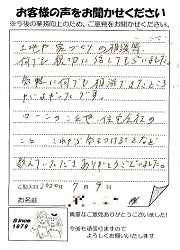 お客様の声をお聞かせください
※今後の業務向上のため、ご意見をお聞かせください。
土地や家づくりの相談等
何でも親切にして もらいました。
気軽に何でも相談できたところ
がいまやったです。
ローンのことや住宅会社の
こと これから気をつけることなど
教えていただきありがとうございました。
ご記入日 2020年 7月 9日
お名前
Since
1979
貴重なご意見ありがとうございます!
今後も頑張りますので
よろしくお願いいたします